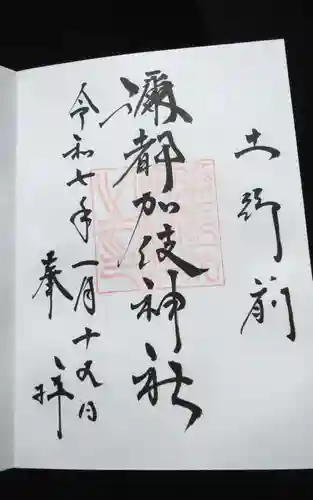 土御前
彌都加伎神社
令和七年一月十九日
奉拝